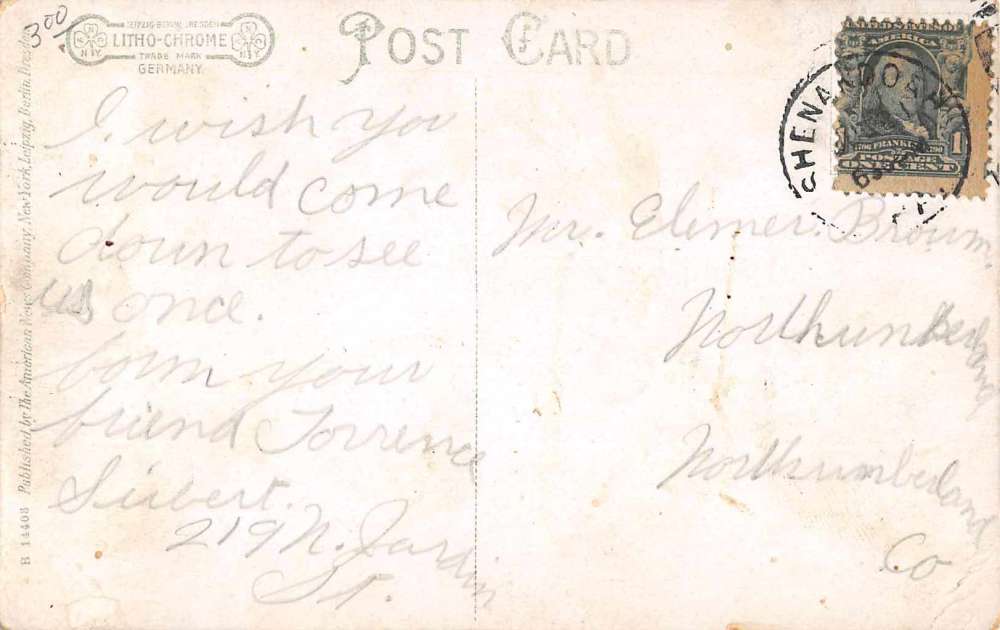 3.00
LEIPZIG-BERLIN-DRESDEN
LITHO-CHROME
TRADE MARK
GERMANY.
N Y.
N Y.
POST CARD
AMERICA
FRANKLIN
POSTAGE
ONE CENT
1
SHENANDOAH
I wish you
would come
down to see
us once.
your
friend Torrence
Siebert.
219 N. Jardin
St.
Mr. Elemer. Brown.
Northumberland
Northumberland
Co
B 14408 Published by The American News Company, New York, Leipzig, Berlin, Dresden